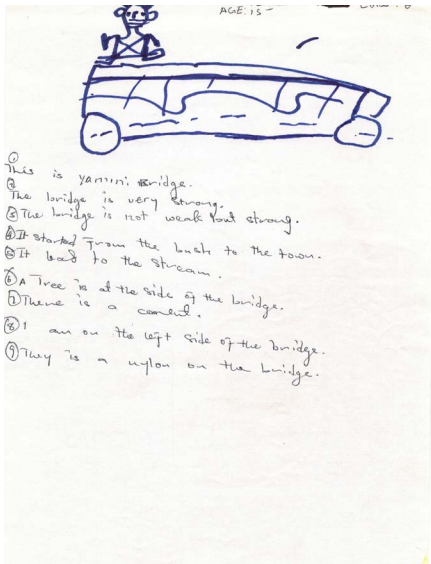 AGE: 15 -
①
This is yamini Bridge.
②
The bridge is very strong.
③ The bridge is not weak but strong.
④ It started from the bush to the town.
⑤ It lead to the stream.
⑥ A Tree is at the side of the bridge.
⑦ There is a cement.
⑧ I am on the left side of the bridge.
⑨ They is a nylon on the bridge.